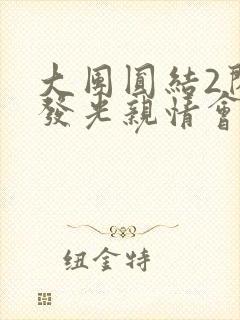 大團圓結2
發光親情會
纽金特